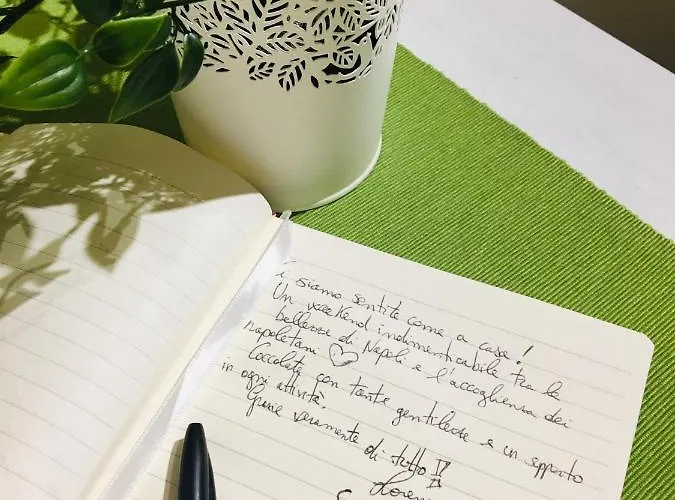 i siamo sentite come a casa!
Un weekend indimenticabile tra le
bellezze di Napoli e l'accoglienza dei
napoletani ♡
Coccolate con tante gentilezze e un supporto
in ogni attività.
Grazie veramente di tutto